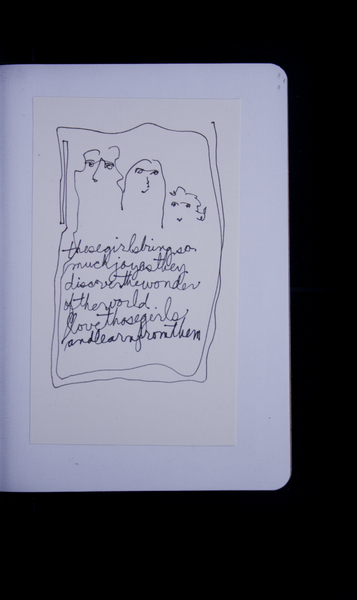 these girls bring so
much joy as they
discover the wonder
of the world.
I love those girls,
and learn from them